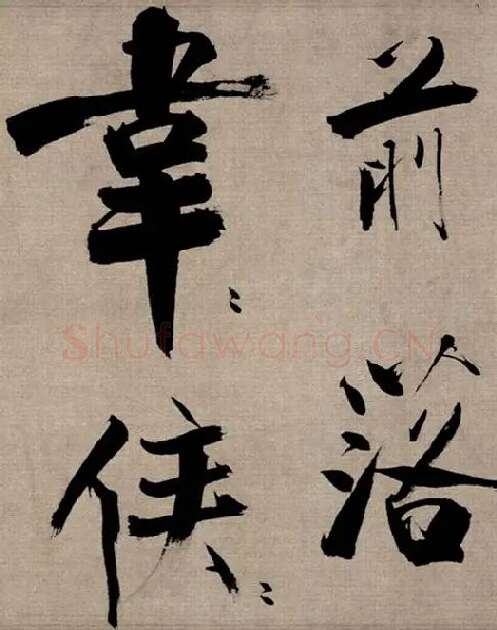 前落
韋〻侯〻
Shufawang.CN